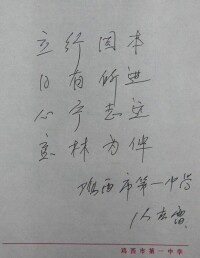 立行固本
日有所进
心宁志远
意林为伴
鸡西市第一中学
鸡西市第一中学